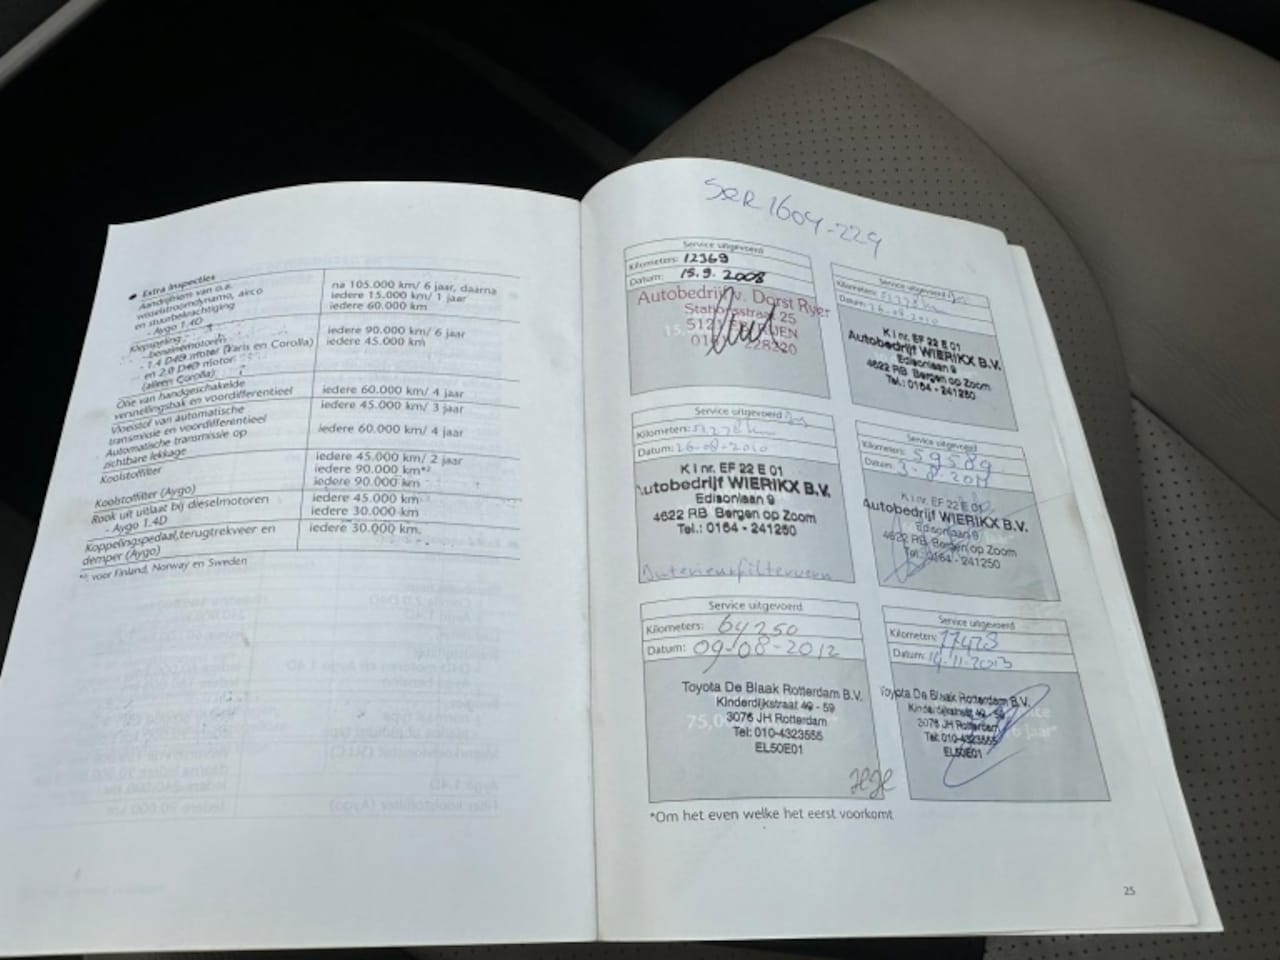 Extra inspecties
Aandrijfriem van o.a.
wisselstroomdynamo, airco
en stuurbekrachtiging
- Aygo 1.4D
na 105.000 km/ 6 jaar, daarna
iedere 15.000 km/ 1 jaar
iedere 60.000 km
Klepspeling
- benzinemotoren
- 1.4 D4D motor (Yaris en Corolla)
en 2.0 D4D motor
(alleen Corolla)
iedere 90.000 km/ 6 jaar
iedere 45.000 km
Olie van handgeschakelde
versnellingsbak en voordifferentieel
iedere 60.000 km/ 4 jaar
Vloeistof van automatische
transmissie en voordifferentieel
iedere 45.000 km/ 3 jaar
Automatische transmissie op
zichtbare lekkage
iedere 60.000 km/ 4 jaar
Koolstoffilter
iedere 45.000 km/ 2 jaar
iedere 90.000 km*²
Koolstoffilter (Aygo)
iedere 90.000 km
Rook uit uitlaat bij dieselmotoren
- Aygo 1.4D
iedere 45.000 km
iedere 30.000 km
Koppelingspedaal,terugtrekveer en
demper (Aygo)
iedere 30.000 km.
*² voor Finland, Norway en Sweden
SER 1604-229
Service uitgevoerd
Kilometers: 12369
Datum: 15.9. 2008
Autobedrijf v. Dorst Rijen
Stationsstraat 25
Service uitgevoerd
Kilometers: 51278 km
Datum: 26-08-2010
K I nr. EF 22 E 01
Autobedrijf WIERIKX B.V.
Edisonlaan 9
4622 RB Bergen op Zoom
Tel.: 0164 - 241250
Service uitgevoerd
Kilometers: 51278 km
Datum: 26-08-2010
K I nr. EF 22 E 01
Autobedrijf WIERIKX B.V.
Edisonlaan 9
4622 RB Bergen op Zoom
Tel.: 0164 - 241250
Interieurfilter
Service uitgevoerd
Kilometers: 59589
Datum: 3-8-2011
K I nr. EF 22 E 01
Autobedrijf WIERIKX B.V.
Edisonlaan 9
4622 RB Bergen op Zoom
Tel.: 0164 - 241250
Service uitgevoerd
Kilometers: 64250
Datum: 09-08-2012
Toyota De Blaak Rotterdam B.V.
Kinderdijkstraat 49 - 59
3076 JH Rotterdam
Tel: 010-4323555
EL50E01
Service uitgevoerd
Kilometers: 77428
Datum: 14-11-2013
Toyota De Blaak Rotterdam B.V.
Kinderdijkstraat 49 - 59
3076 JH Rotterdam
Tel: 010-4323555
EL50E01
*Om het even welke het eerst voorkomt
25